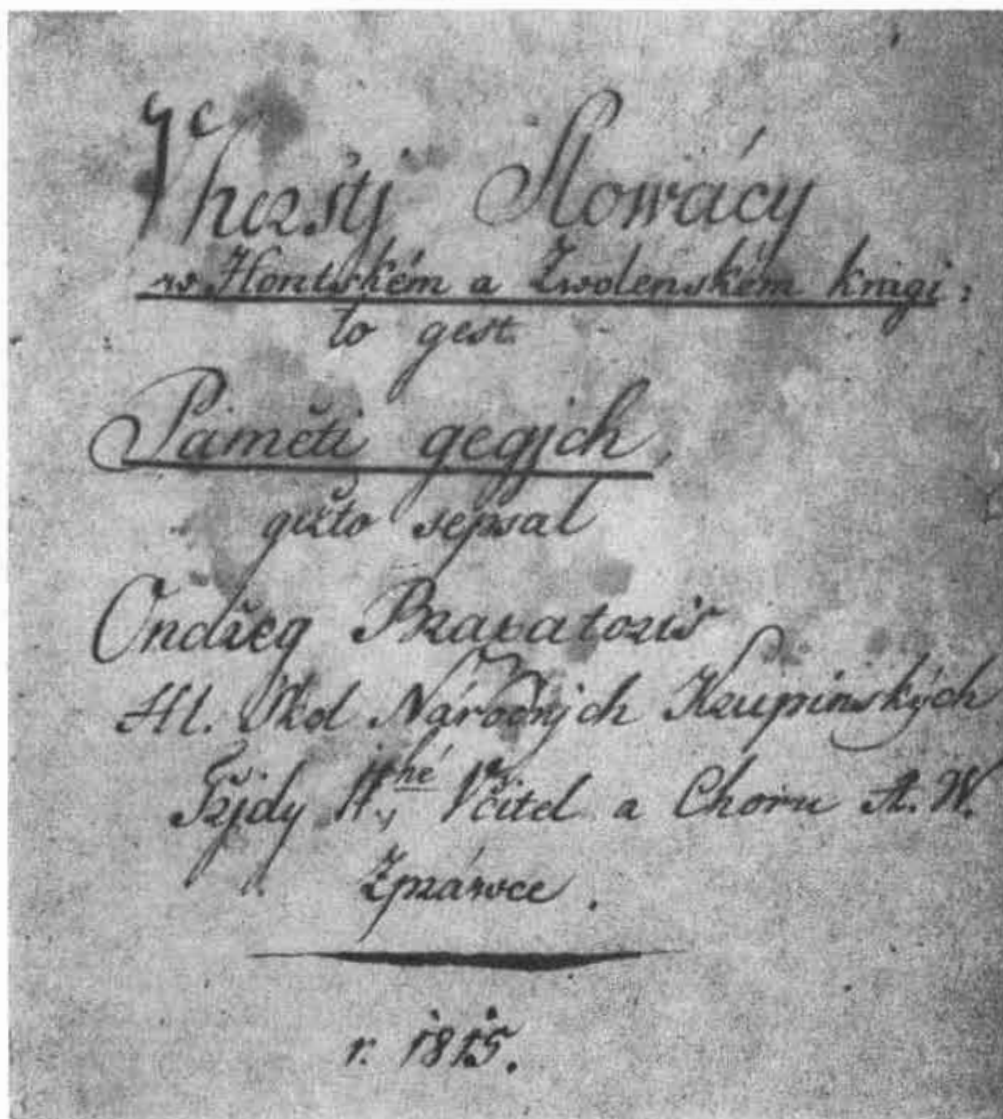 Vherštj Slowácy
w Hontském a Zwolenském kragi,
to gest
Paměti gegjch,
gižto sepsal
Ondřeg Braxatoris
Hl. Škol Národnjch Krupinských
Třjdy II.hé Včitel a Choru A. W.
Zpráwce.
r. 1815.